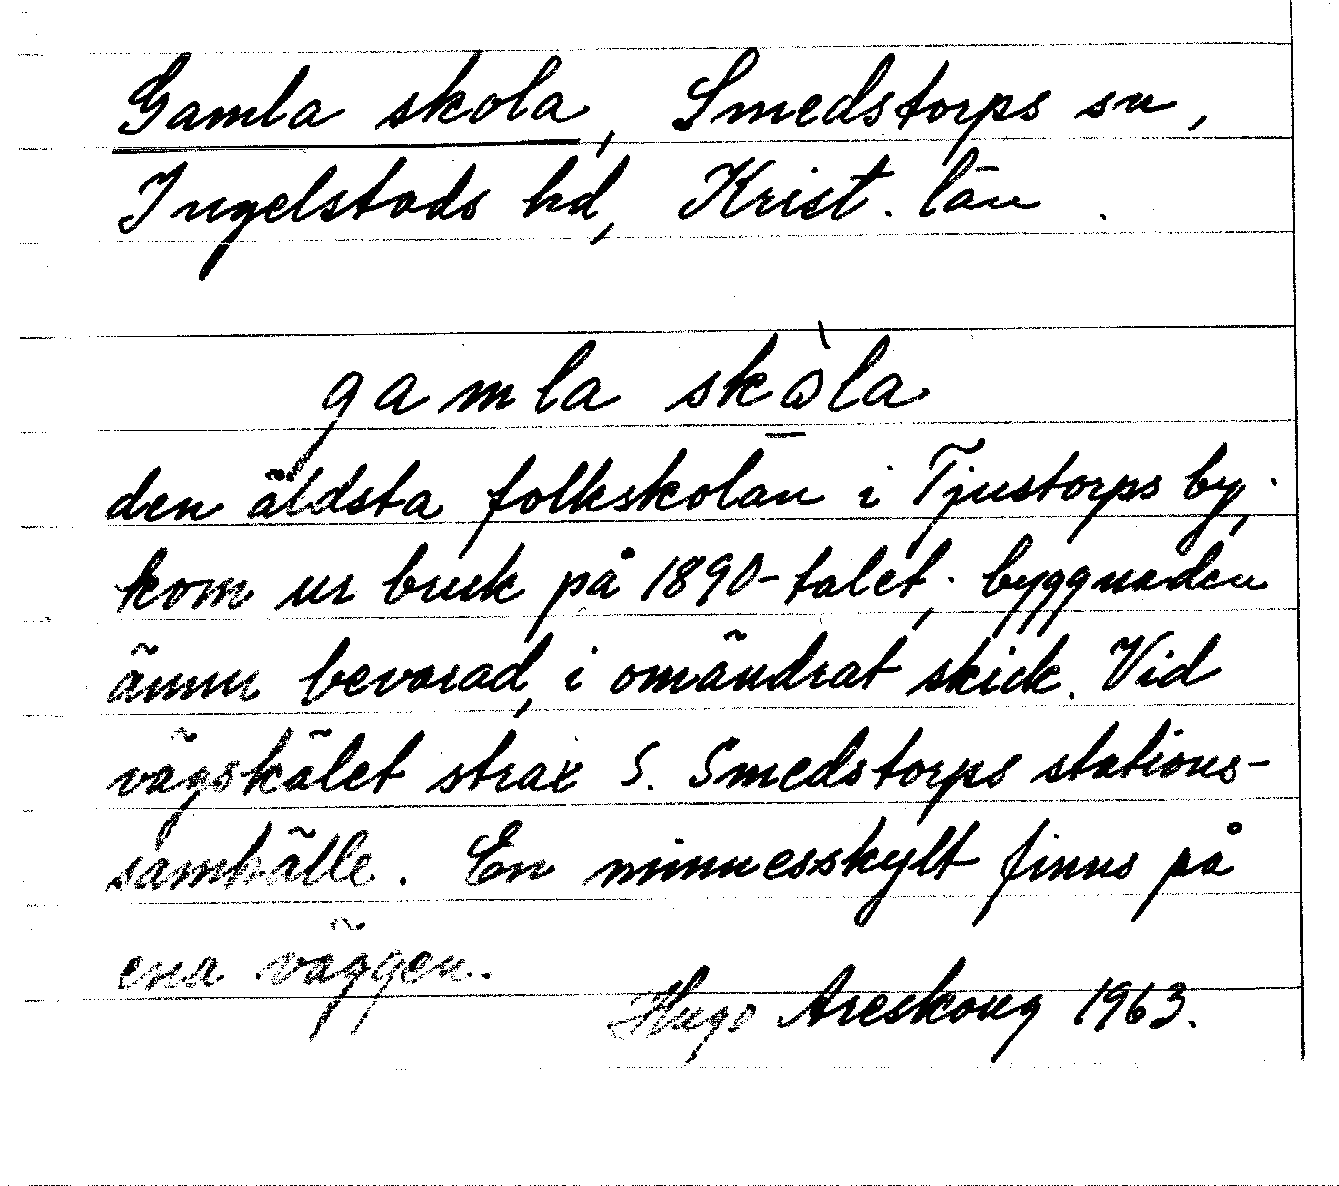 Gamla skola, Smedstorps sn,
Ingelstads hd, Krist. län.
gamla skòla
den äldsta folkskolan i Tjustorps by,
kom ur bruk på 1890-talet; byggnaden
ännu bevarad, i omändrat skick. Vid
vägskälet strax S. Smedstorps stations-
samhälle. En minnesskylt finns på
ena väggen.
Hugo Areskoug 1963.